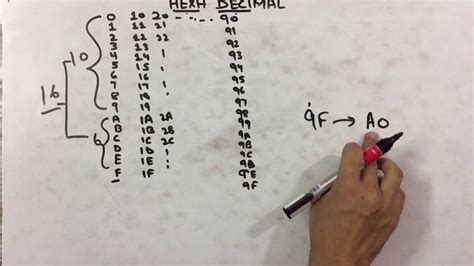 HEXA DECIMAL
0 10 20 ------- 90
1 11 21 91
2 12 22 92
3 13 93
4 14 94
5 15 95
6 16 96
7 17 97
8 18 98
9 19 99
A 1A 2A 9A
B 1B 2B 9B
C 1C 2C 9C
D 1D 9D
E 1E 9E
F 1F 9F
10
16
6
9F → A0